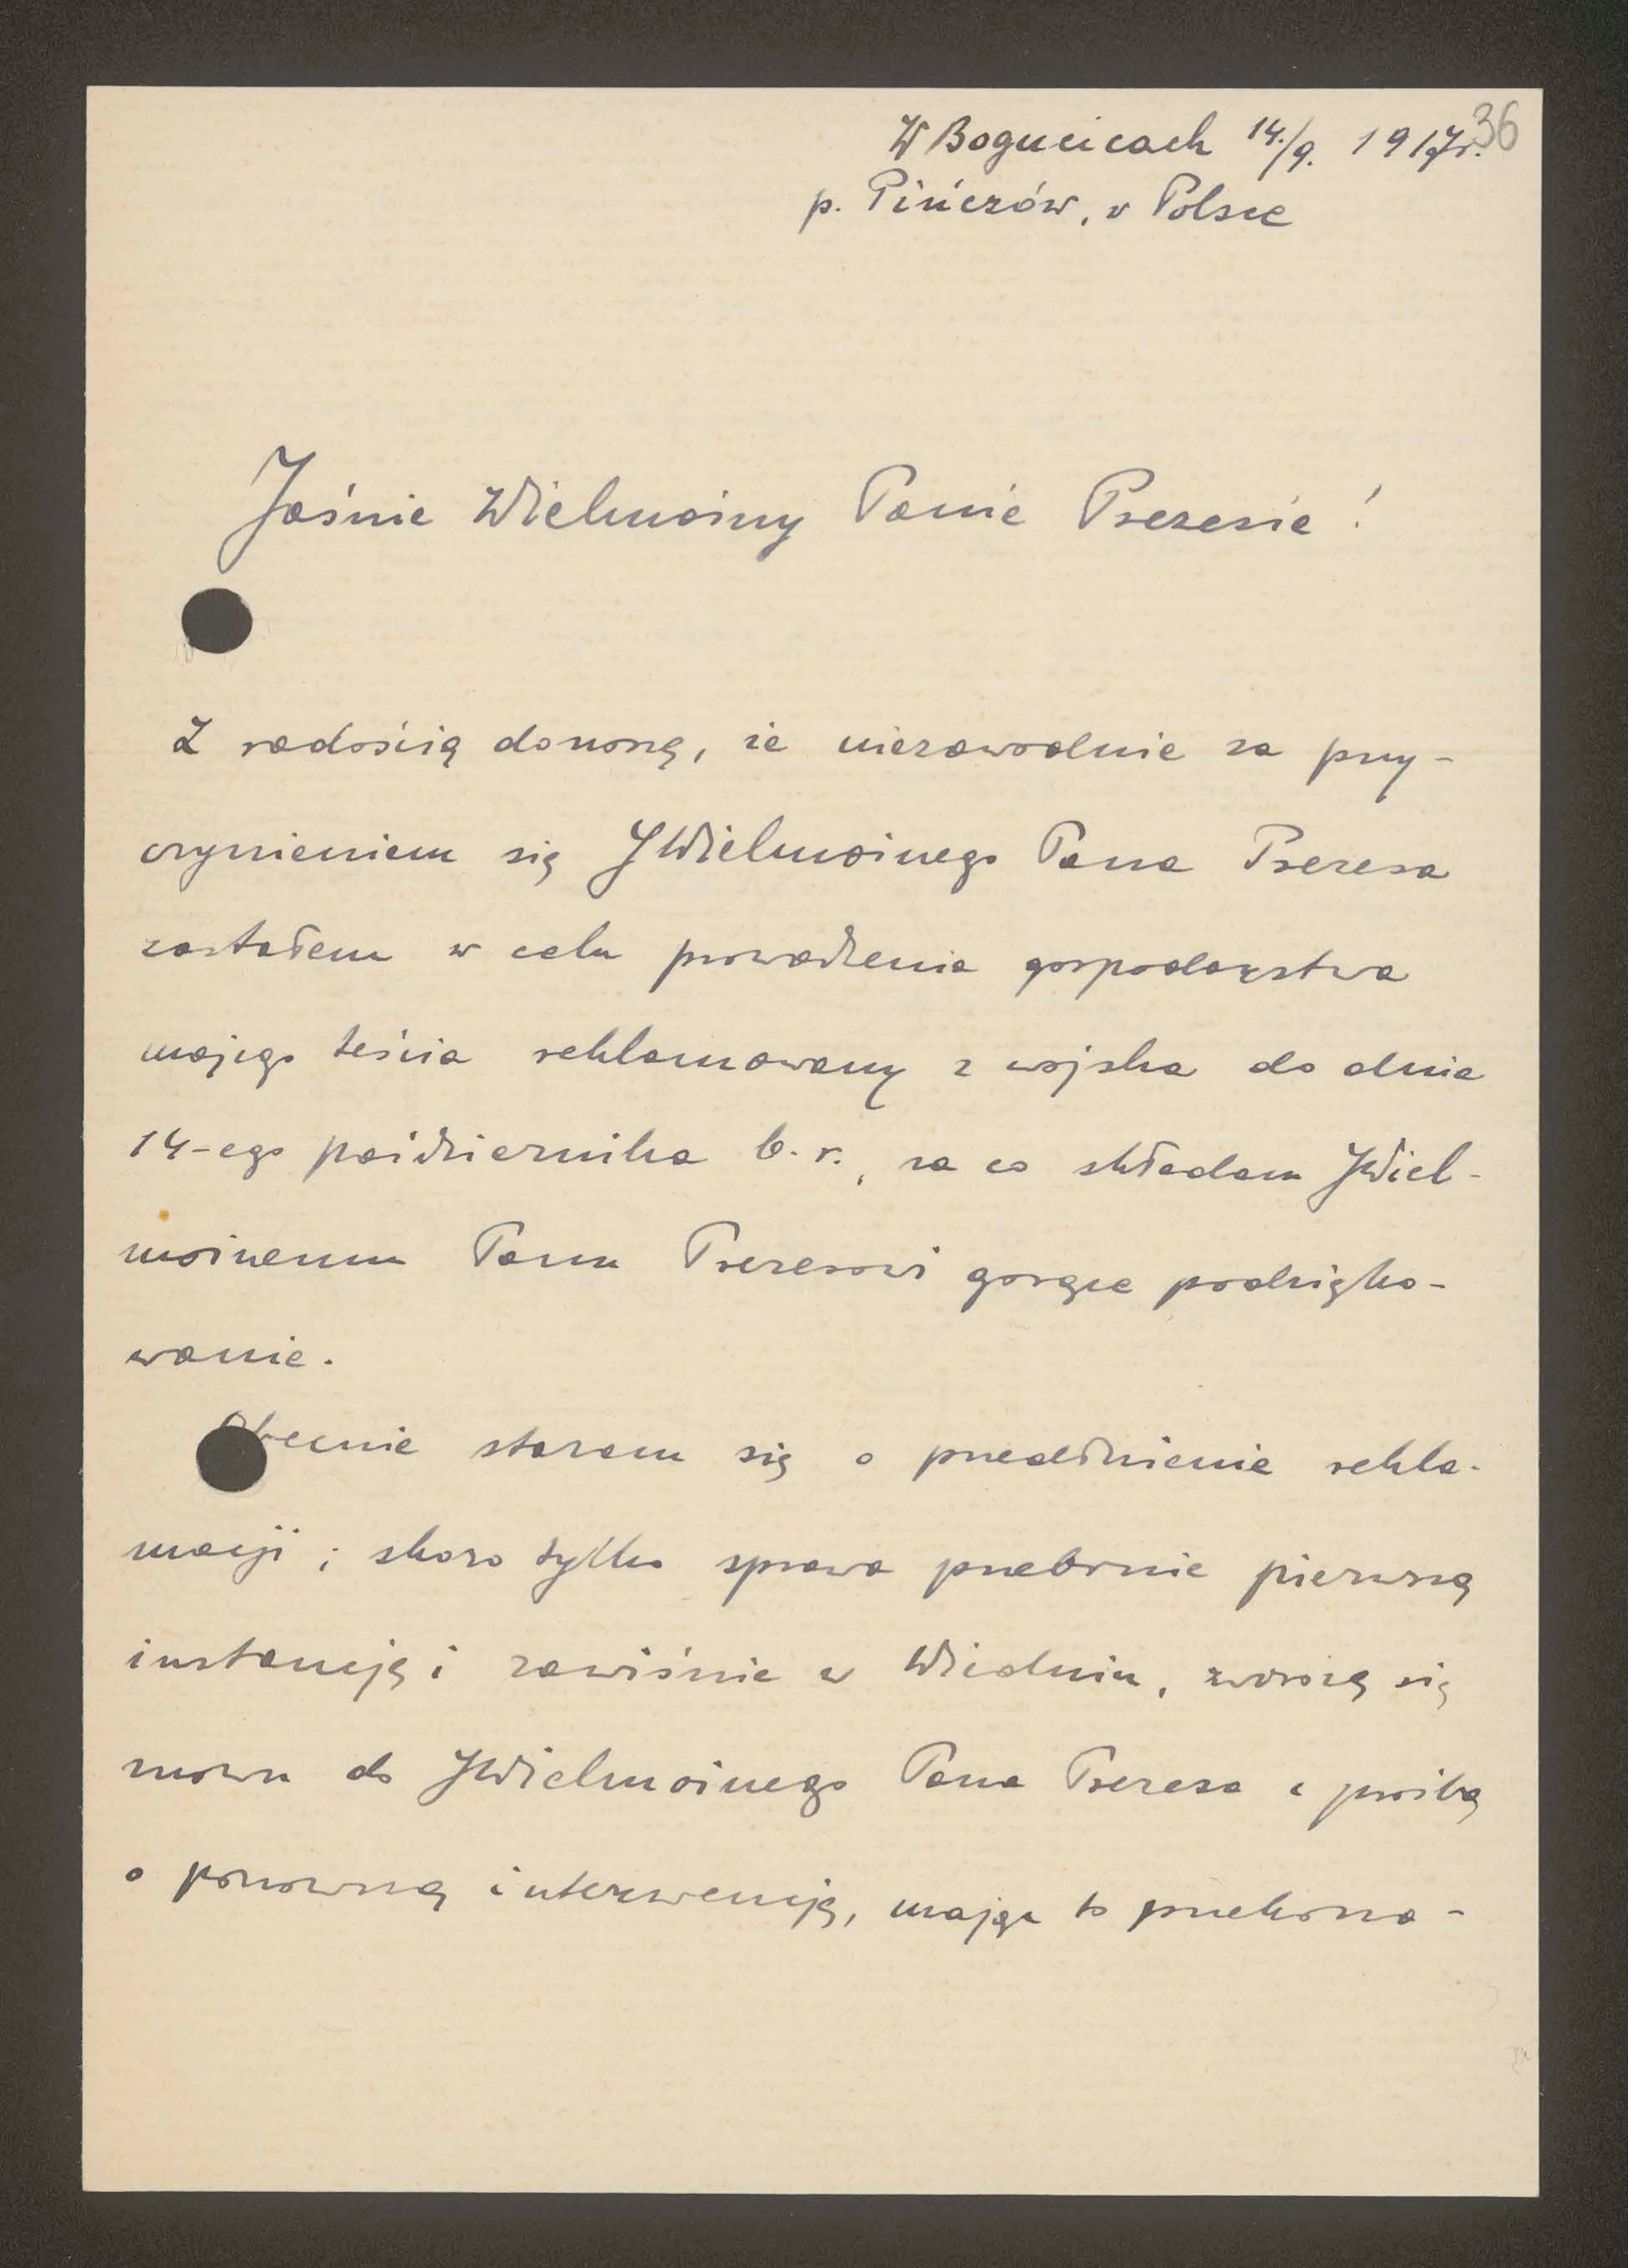 W Bogucicach 14./9. 1917r.
36
p. Pińczów, v Polsce
Jaśnie Wielmożny Panie Prezesie!
Z radością donoszę, że niezawodnie za przy-
czynieniem się JWielmożnego Pana Prezesa
zostałem w celu prowadzenia gospodarstwa
mojego teścia reklamowany z wojska do dnia
14-ego października b. r., za co składam JWiel-
możnemu Panu Prezesowi gorące podzięko-
wanie.
Obecnie staram się o przedłużenie rekla-
macji; skoro tylko sprawa przebrnie pierwszą
instancję i zawiśnie w Wiedniu, zwrócę się
znowu do JWielmożnego Pana Prezesa z prośbą
o ponowną interwencję, mając to przekona-